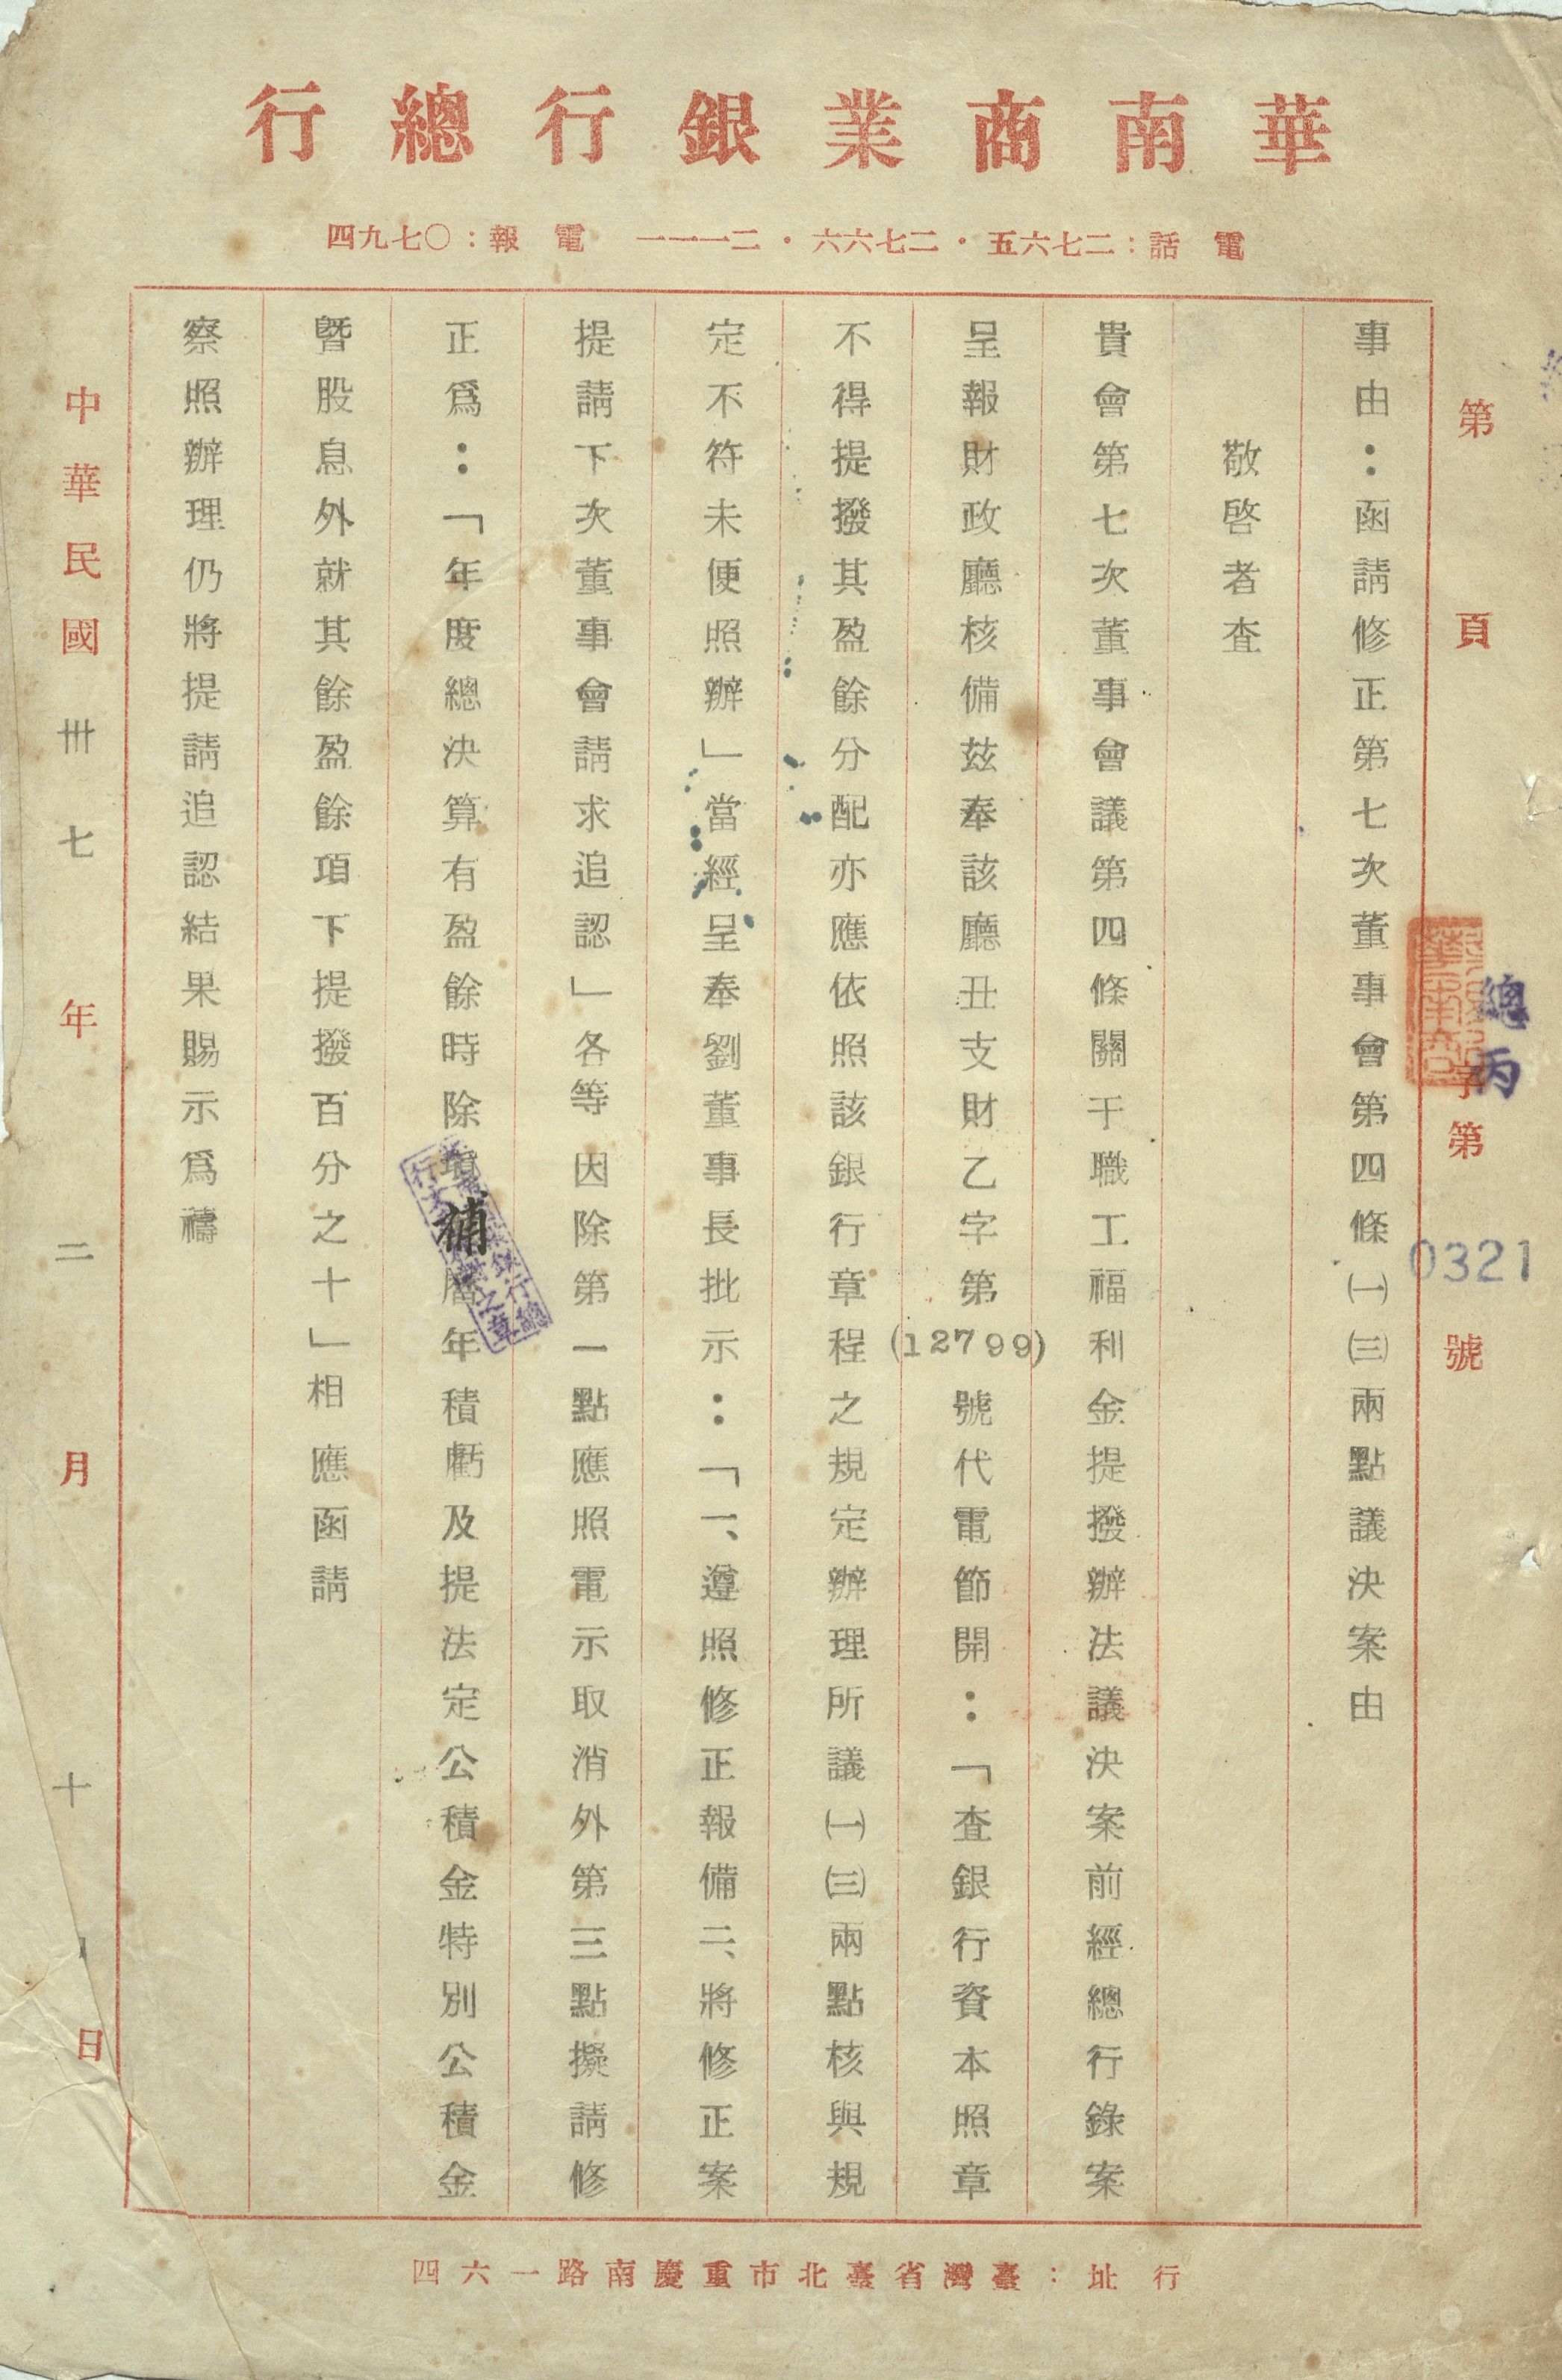 華南商業銀行總行
電話：二七六五・二七六六・二一一一　電報：〇七九四
第　頁
總丙字第0321號
事由：函請修正第七次董事會第四條㈠㈢兩點議決案由
敬啓者查
貴會第七次董事會議第四條關于職工福利金提撥辦法議決案前經總行錄案
呈報財政廳核備茲奉該廳丑支財乙字第(12799)號代電節開：「查銀行資本照章
不得提撥其盈餘分配亦應依照該銀行章程之規定辦理所議㈠㈢兩點核與規
定不符未便照辦」當經呈奉劉董事長批示：「一、遵照修正報備二、將修正案
提請下次董事會請求追認」各等因除第一點應照電示取消外第三點擬請修
正爲：「年度總決算有盈餘時除塡補曆年積虧及提法定公積金特別公積金
曁股息外就其餘盈餘項下提撥百分之十」相應函請
察照辦理仍將提請追認結果賜示爲禱
中華民國卅七年二月十日
行址：臺灣省臺北市重慶南路一六四